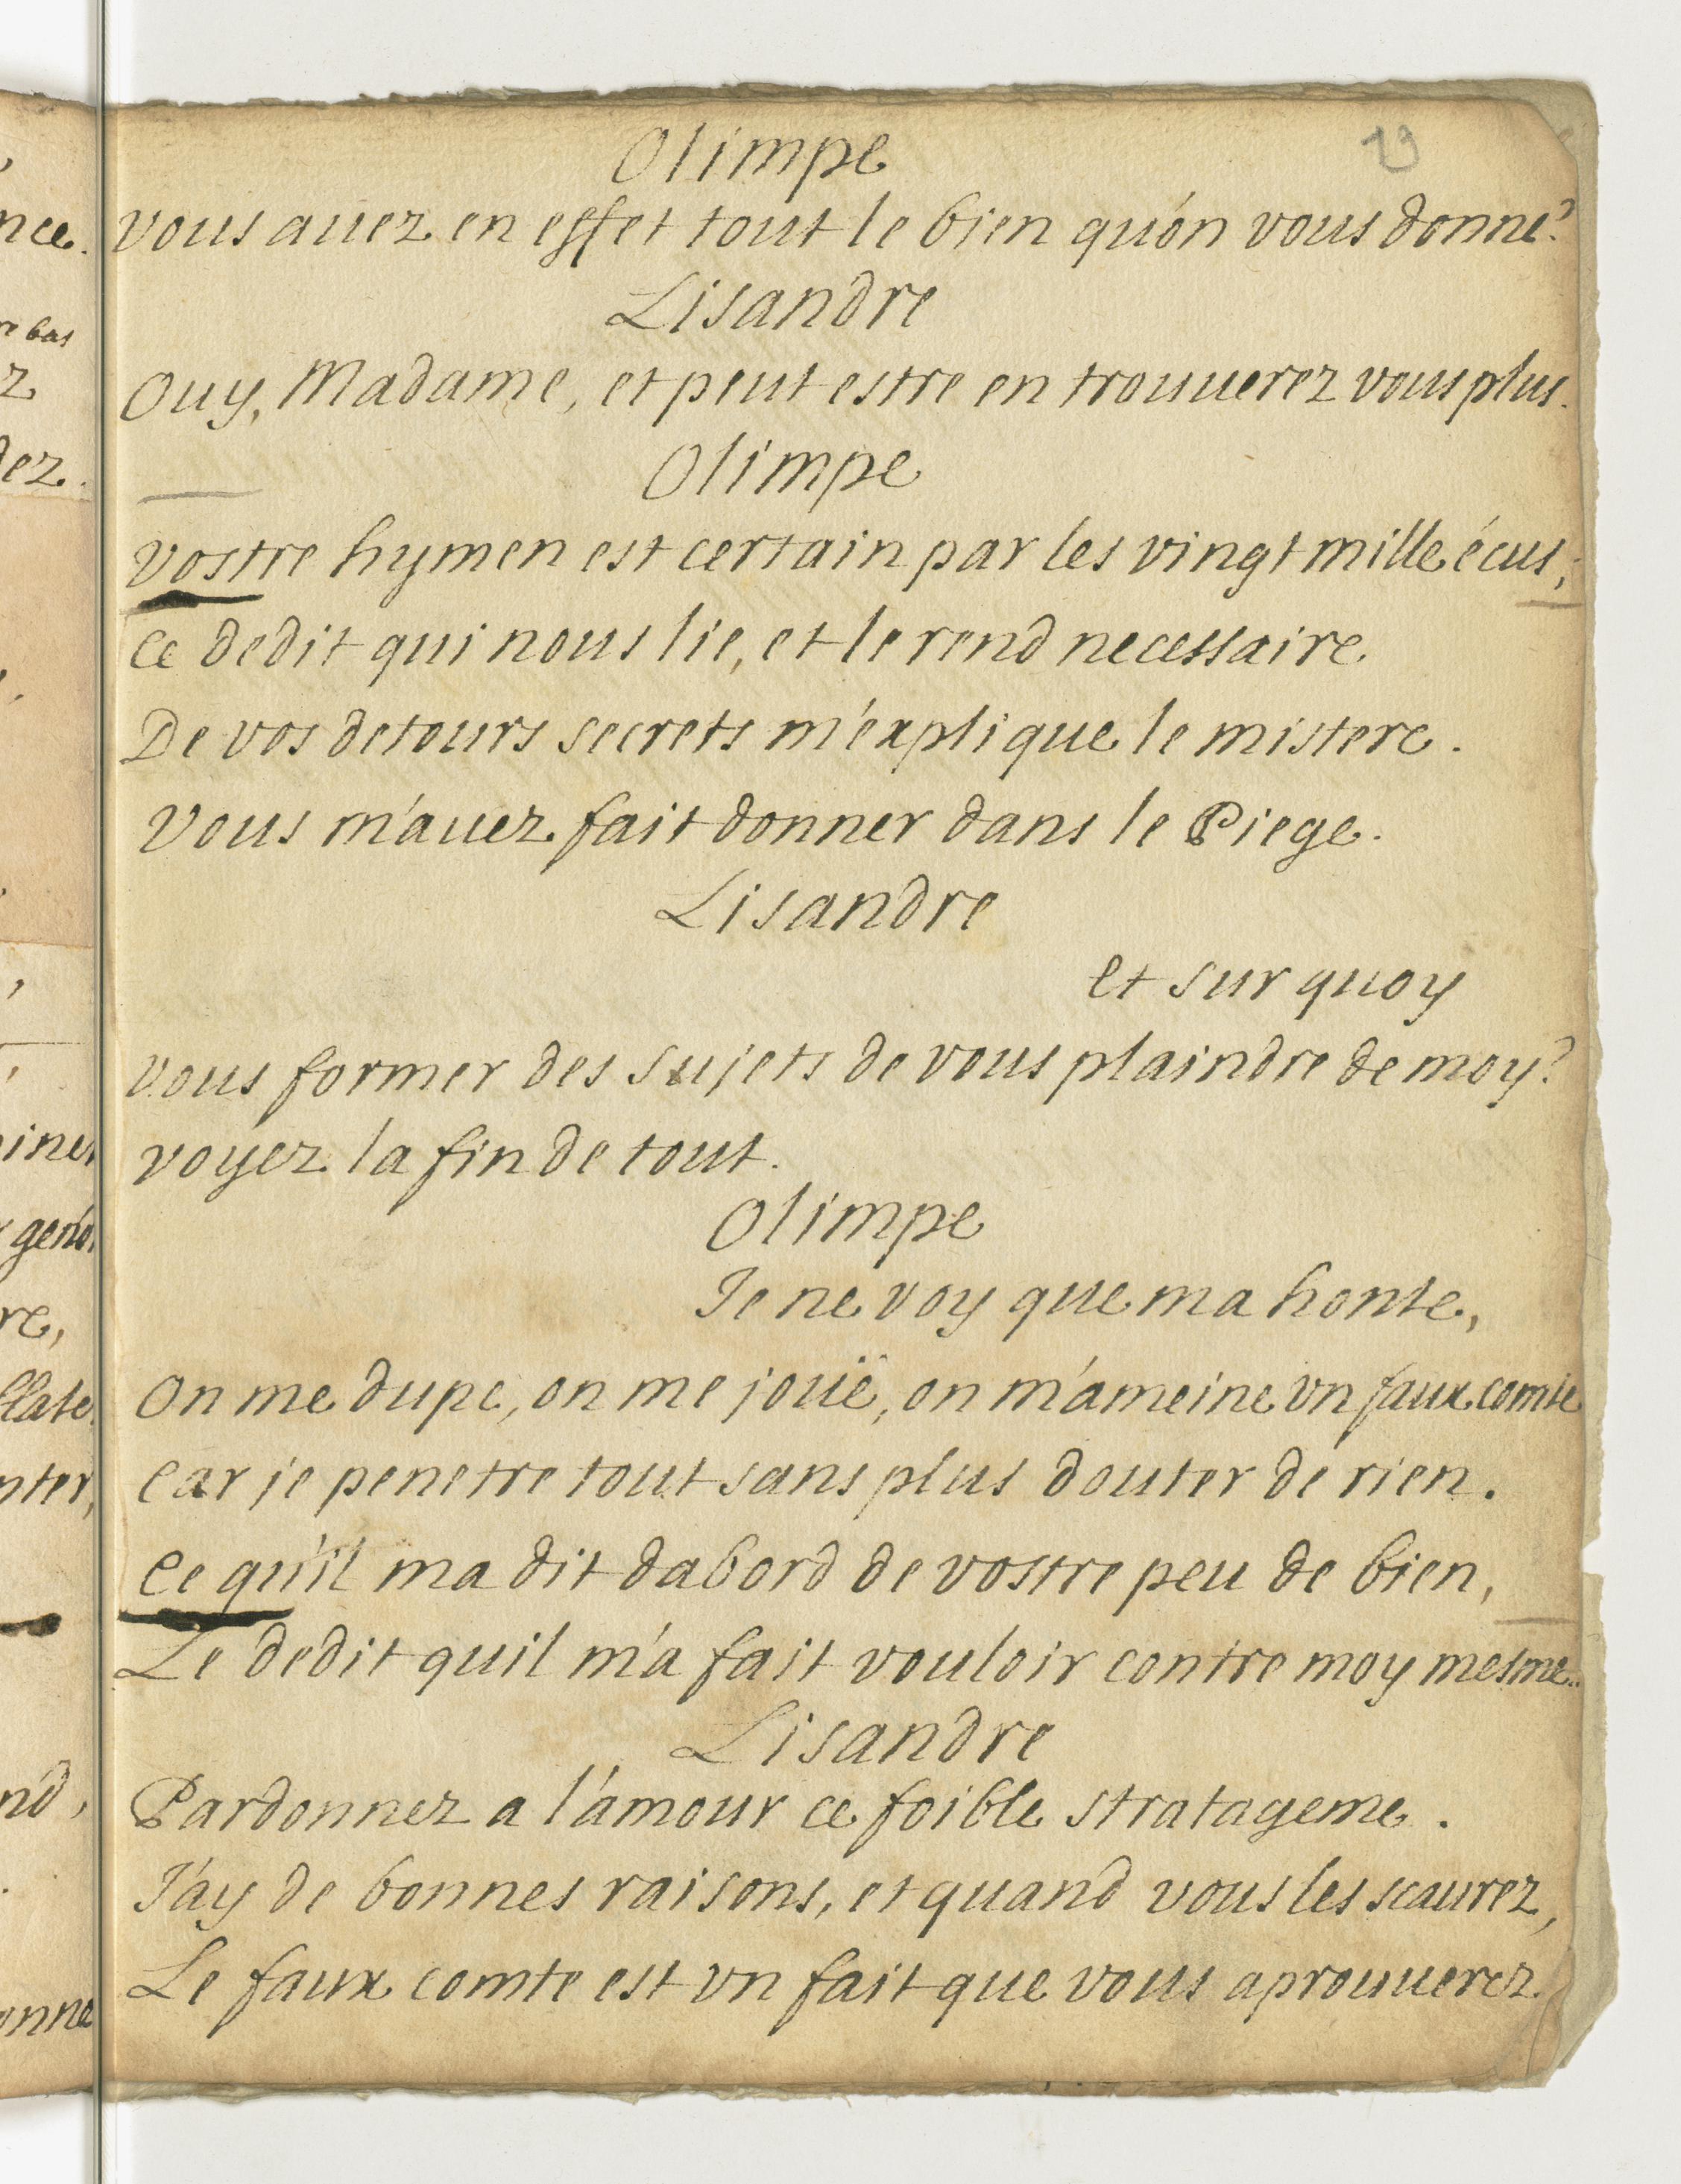 13
Olimpe
vous auez en effet tout le bien qu'on vous donne?
Lisandre
Ouy, Madame, et peut estre en trouuerez vous plus.
Olimpe
vostre hymen est certain par les vingt mille écus,
ce dedit qui nous lie, et le rend necessaire
De vos detours secrets m'explique le mistere.
Vous m'auez fait donner dans le Piege.
Lisandre
et sur quoy
vous former des sujets de vous plaindre de moy?
voyez la fin de tout.
Olimpe
Je ne voy que ma honte,
On me dupe, on me jouë, on m'ameine vn faux comte
Car je penetre tout sans plus douter de rien.
Ce qu'il ma dit dabord de vostre peu de bien,
Le dedit quil m'a fait vouloir contre moy mesme..
Lisandre
Pardonnez a l'amour ce foible stratageme.
J'ay de bonnes raisons, et quand vous les scaurez,
Le faux comte est vn fait que vous aprouuerez.